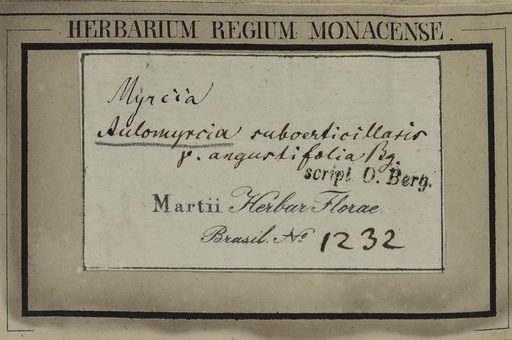 HERBARIUM REGIUM MONACENSE.
Myrcia
Aulomyrcia suboerticillaris
γ. angustifolia Bg.
script. O. Berg.
Martii Herbar. Florae
Brasil. No 1232